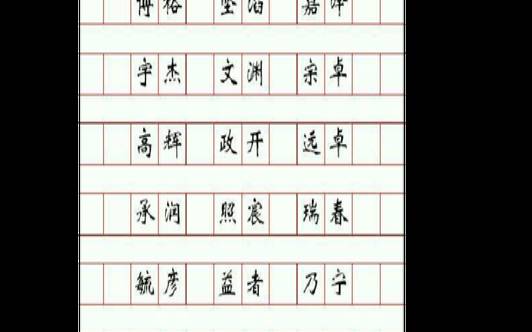 宇杰 文渊 宗卓
高辉 政开 远卓
承润 照宸 瑞春
毓彦 益者 乃宁